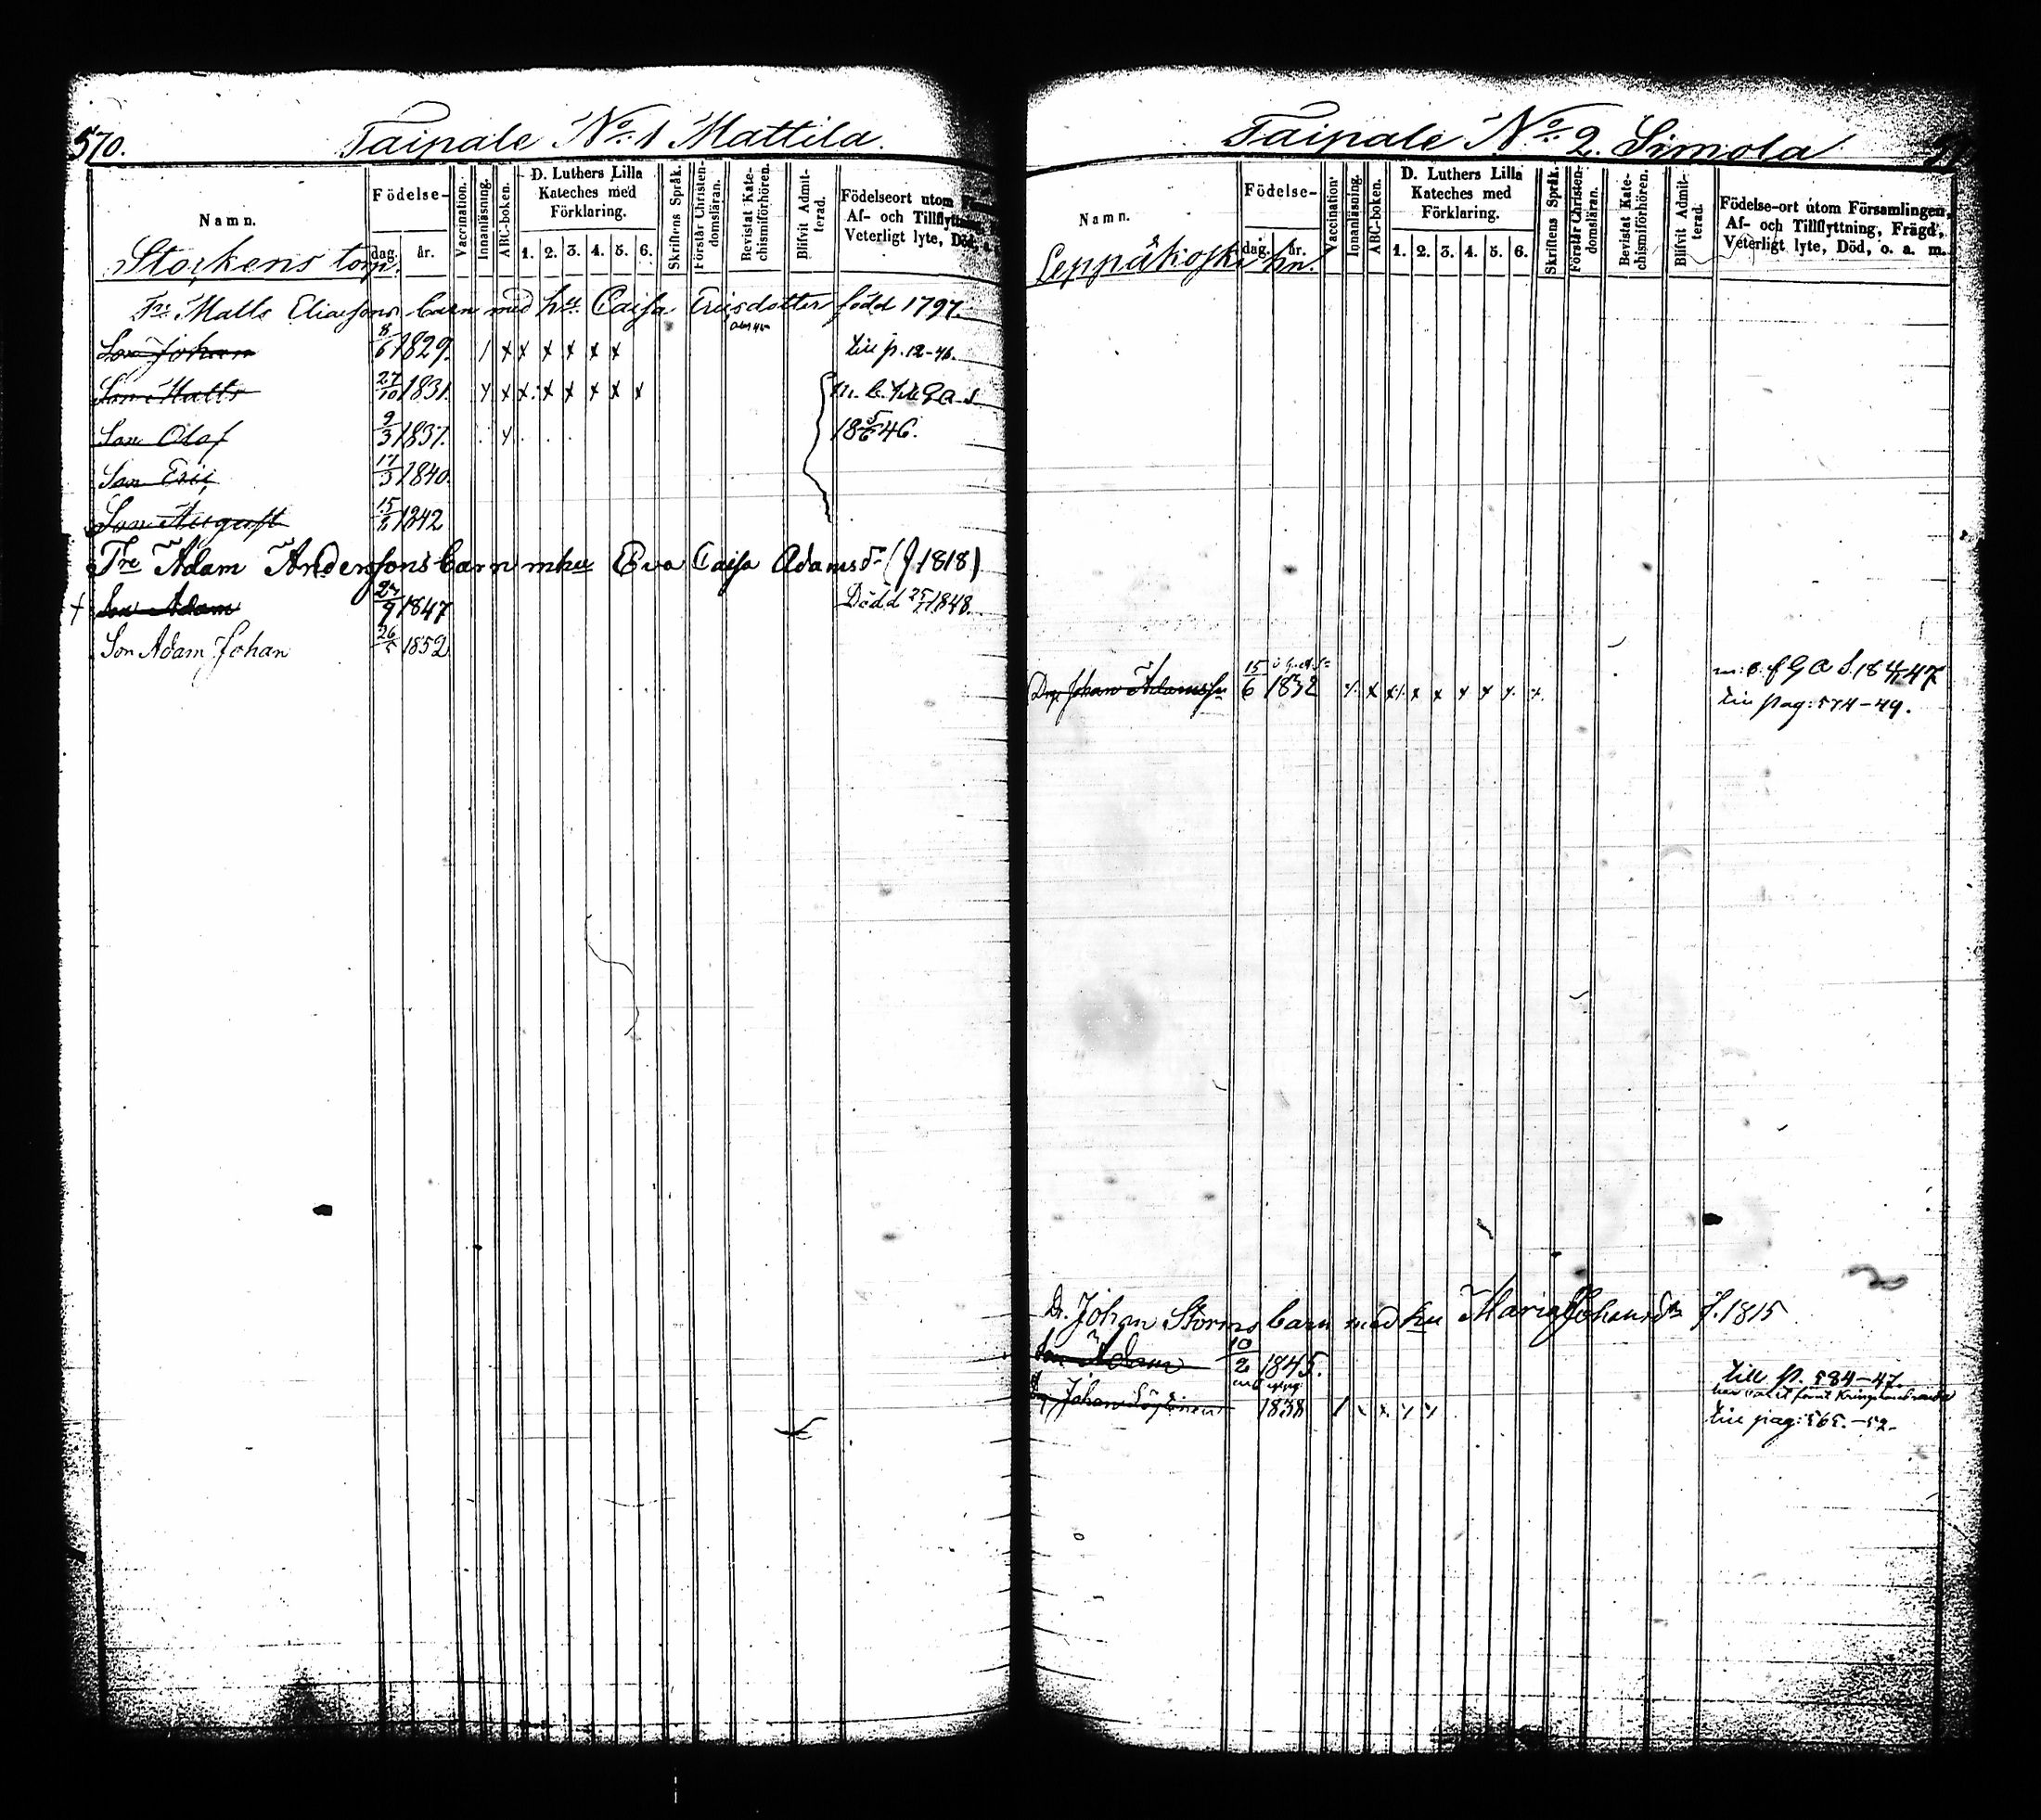 570.
Taipale No. 1 Mattila.
Namn.
Födelse-
dag.
år.
Vaccination.
Innanläsning.
ABC-boken.
D. Luthers Lilla
Kateches med
Förklaring.
1. 2. 3. 4. 5. 6.
Skriftens Språk.
Förstår Christen-
domsläran.
Bevistat Kate-
chismiförhören.
Blifvit Admit-
terad.
Födelseort utom
Af- och Tillflyttning
Veterligt lyte, Död,
Storkens torp.
Tre Matts Eliassons barn med hu Caisa Ericsdotter född 1797.
Son Johan 8/6 1829. / x x x x x x till p. 12-46.
Son Matts 27/10 1831. x x x x x x x x
Son Olof 9/3 1837. x 18 5/6 46.
Son Eric 17/3 1840.
Son August 15/8 1842
Tre Adam Anderssons barn m hu Eva Caisa Adamsdr (f 1818)
+ Son Adam 24/9 1847 Död d 25/7 1848.
Son Adam Johan 26/5 1852
Taipale No. 2. Simola
Namn.
Födelse-
dag.
år.
Vaccination.
Innanläsning.
ABC-boken.
D. Luthers Lilla
Kateches med
Förklaring.
1. 2. 3. 4. 5. 6.
Skriftens Språk.
Förstår Christen-
domsläran.
Bevistat Kate-
chismiförhören.
Blifvit Admit-
terad.
Födelse-ort utom Församlingen,
Af- och Tillflyttning, Frägd,
Veterligt lyte, Död, o. a. m.
Leppäkoski hn.
Drg. Johan Adamsson 15/6 1832 x x x x x x x x x
till pag: 574-49.
Dr. Johan Storms barn med hu Maria Johansdr f. 1815
Son Adam 10/2 1845. till p. 584-47.
Johan 1838 / x x x x
till pag: 565.-52.